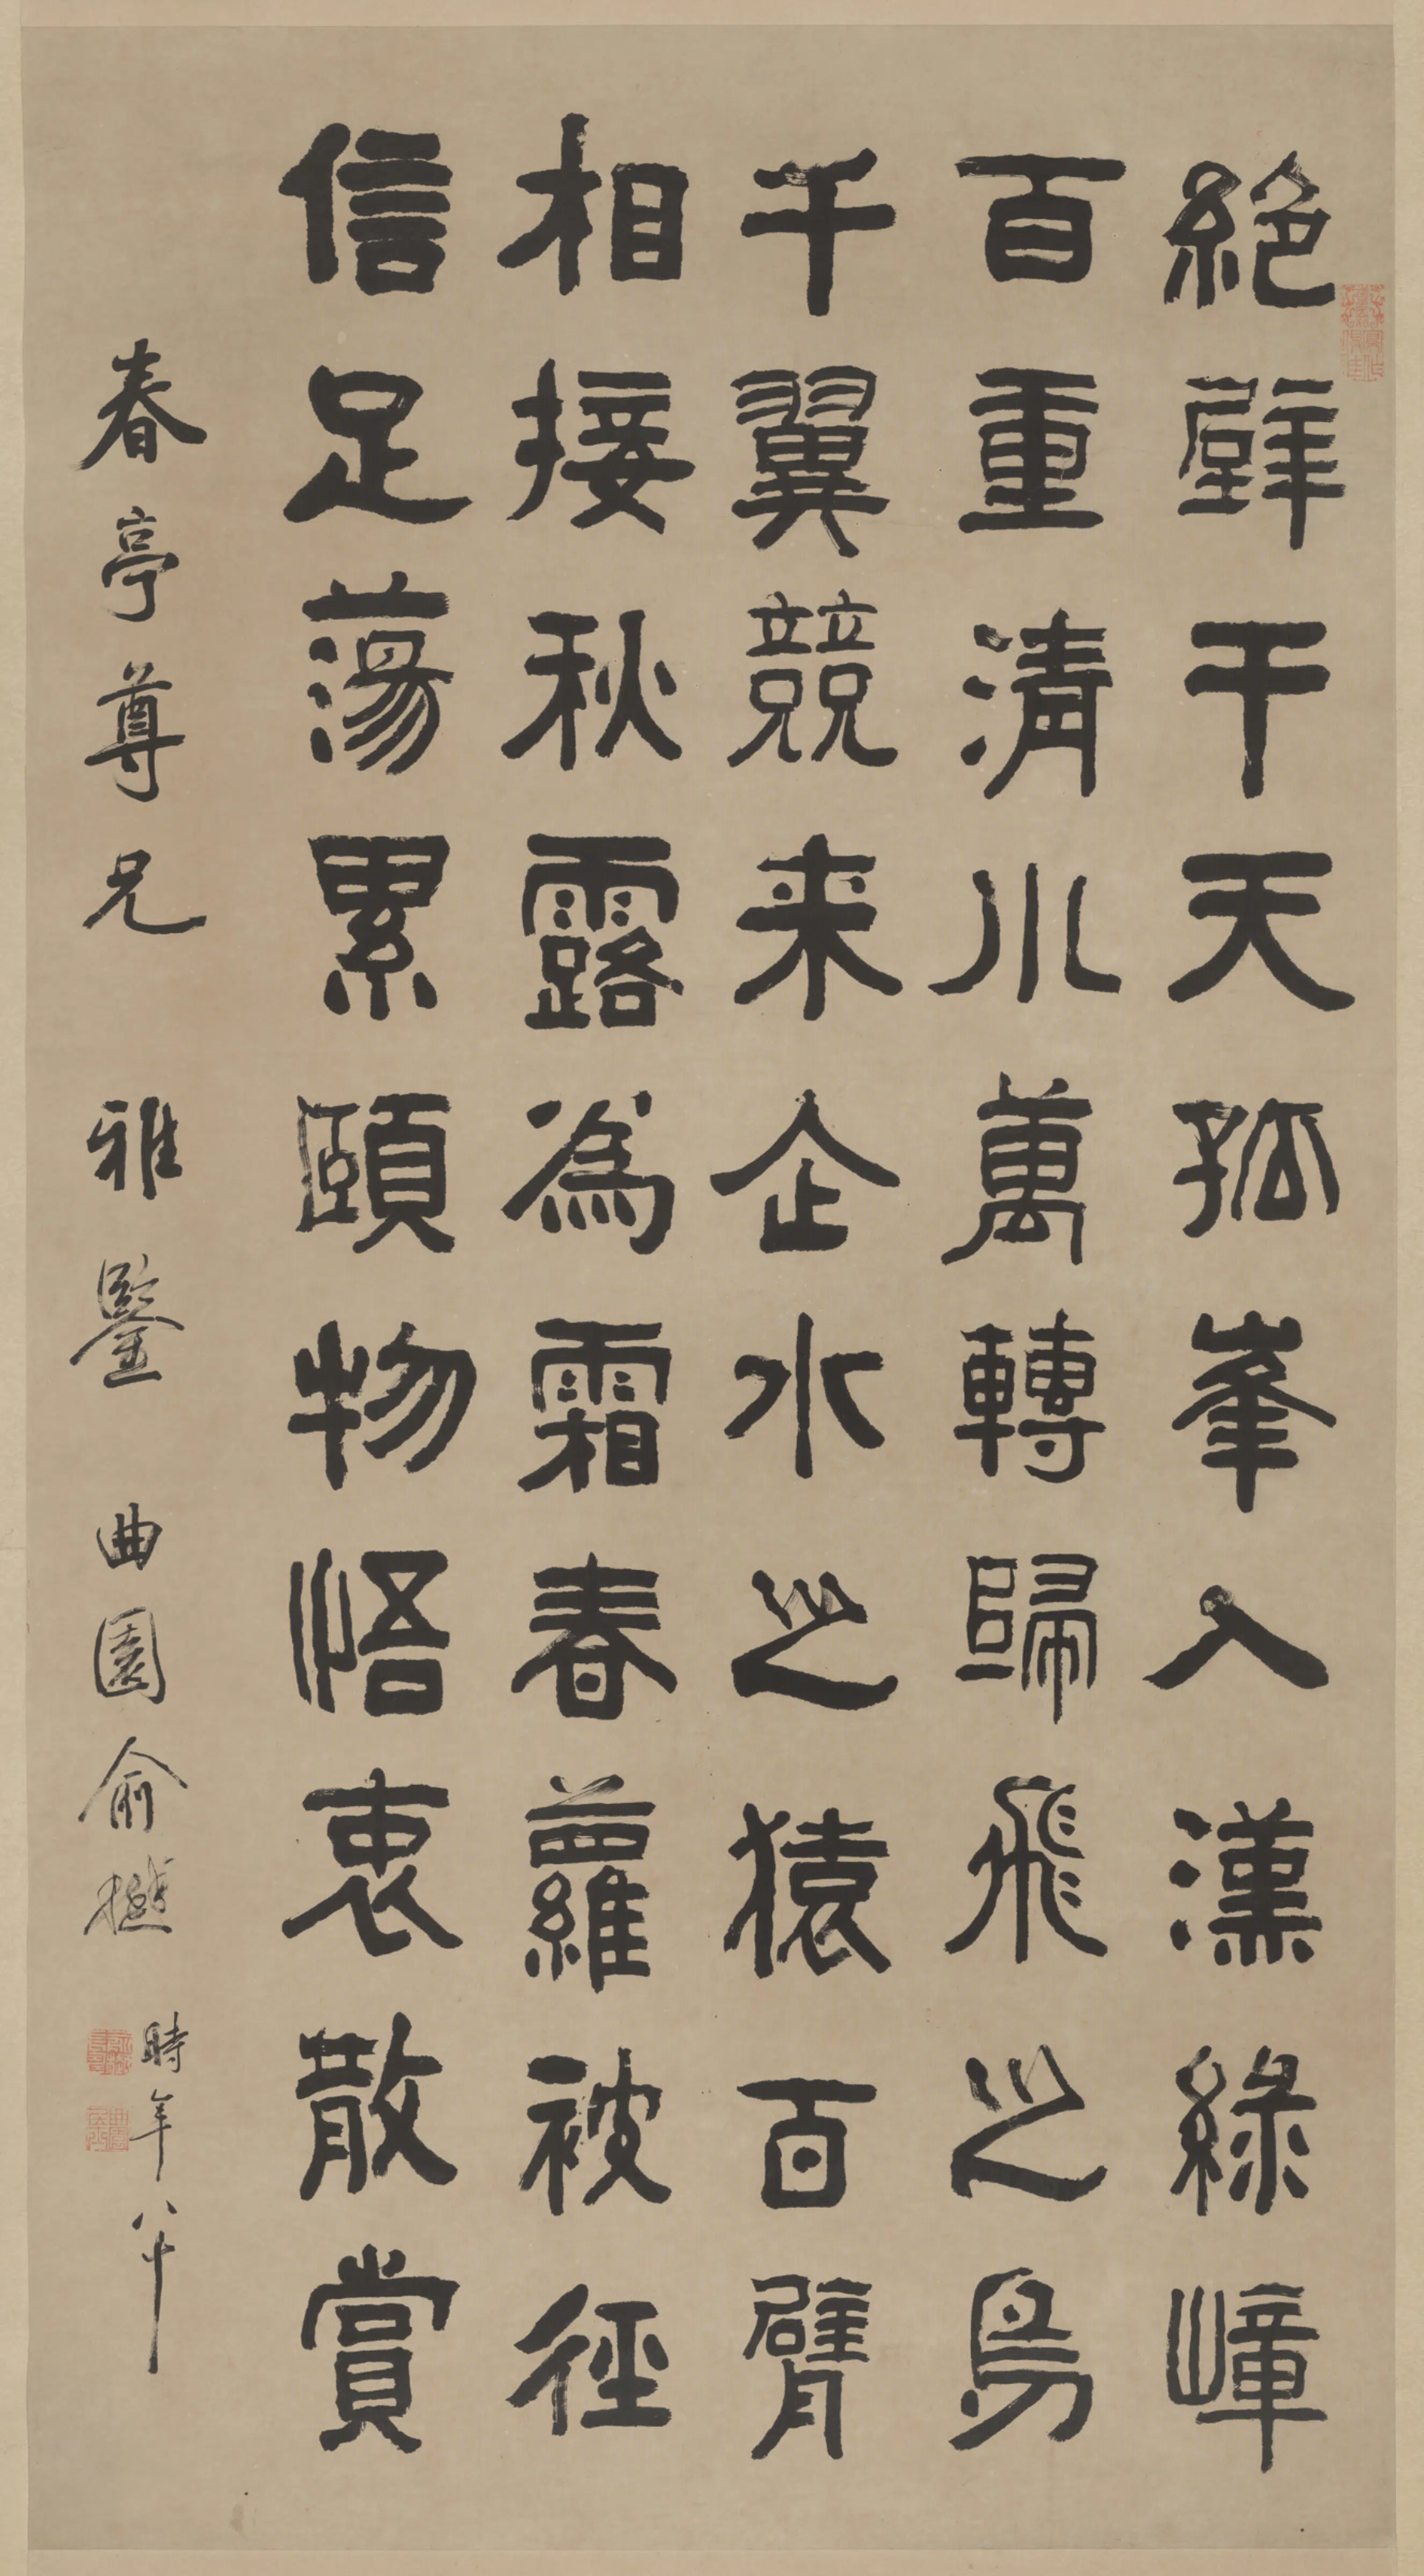 絕壁干天孤峯入漢綠嶂
百重清川萬轉歸飛之鳥
千翼競来企水之猿百臂
相接秋露為霜春蘿被徑
信足蕩累頤物悟衷散賞
春亭尊兄 雅鑒 曲園俞樾
時年八十